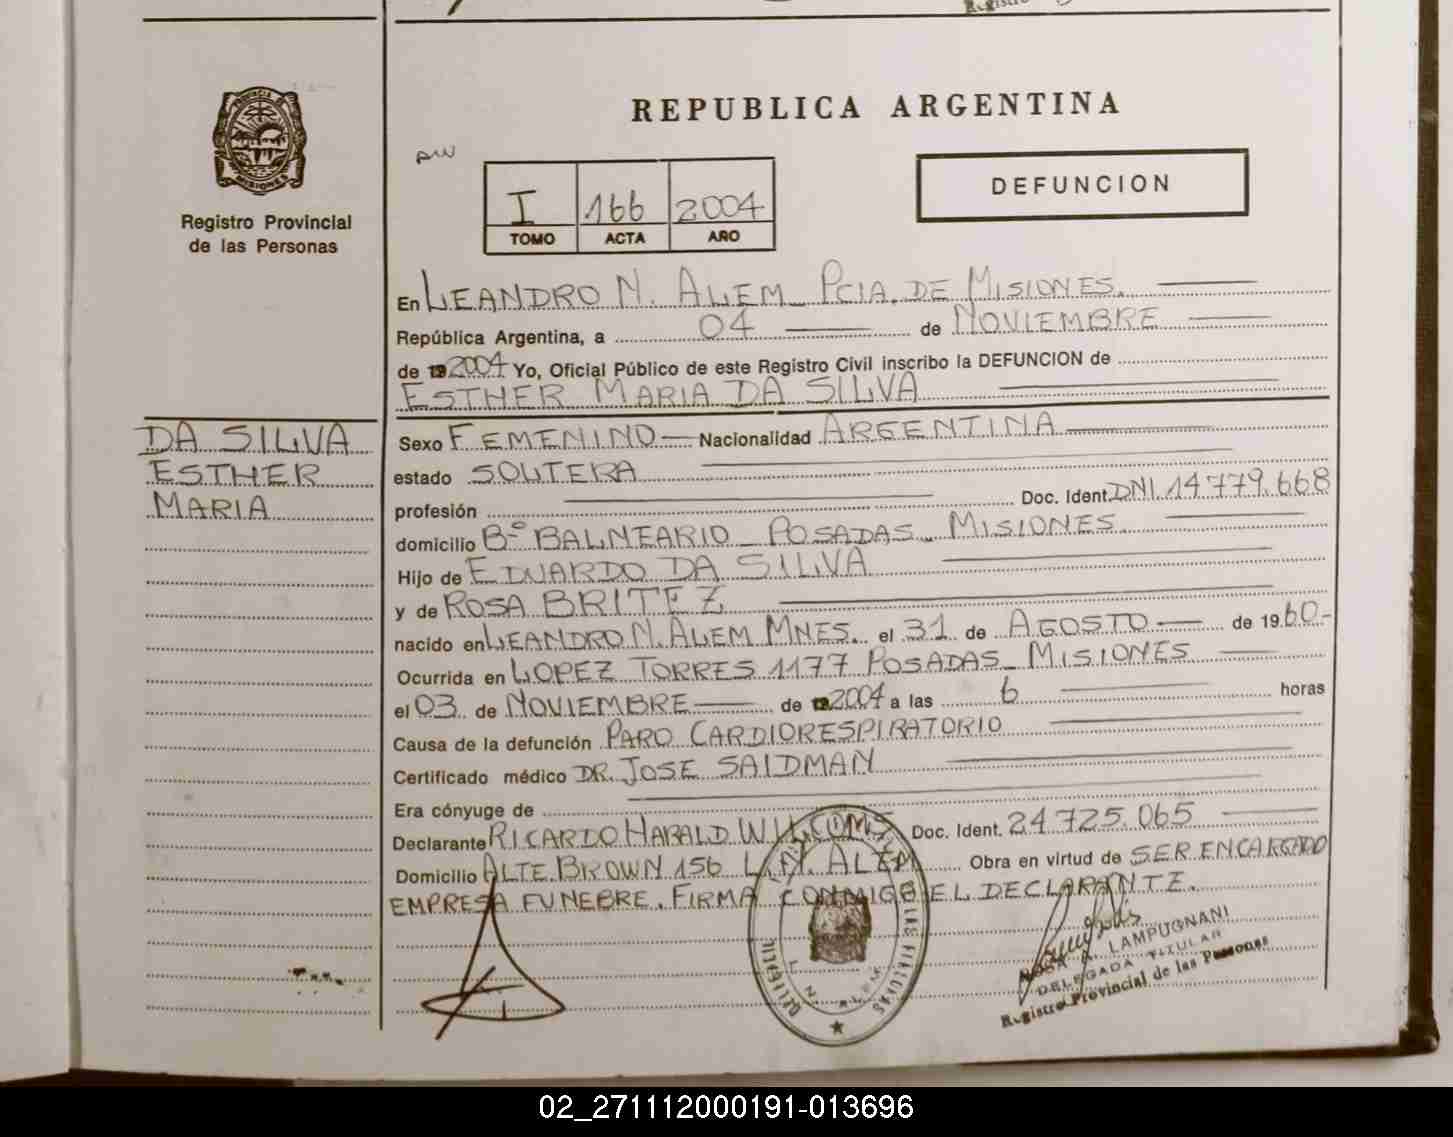 PROVINCIA DE
MISIONES
Registro Provincial
de las Personas
REPUBLICA ARGENTINA
I 166 2004
TOMO ACTA AÑO
DEFUNCION
En LEANDRO N. ALEM - PCIA. DE MISIONES.
República Argentina, a 04 de NOVIEMBRE
de 2004 Yo, Oficial Público de este Registro Civil inscribo la DEFUNCION de
ESTHER MARIA DA SILVA
DA SILVA
ESTHER
MARIA
Sexo FEMENINO Nacionalidad ARGENTINA
estado SOLTERA
profesión Doc. Ident. DNI. 14.779.668
domicilio Bº BALNEARIO - POSADAS - MISIONES
Hijo de EDUARDO DA SILVA
y de ROSA BRITEZ
nacido en LEANDRO N. ALEM MNES. el 31 de AGOSTO de 1960-
Ocurrida en LOPEZ TORRES 1177 POSADAS - MISIONES
el 03 de NOVIEMBRE de 2004 a las 6 horas
Causa de la defunción PARO CARDIORESPIRATORIO
Certificado médico DR. JOSE SAIDMAN
Era cónyuge de
Declarante RICARDO HARALD Doc. Ident. 24.725.065
Domicilio ALTE BROWN 156 L.N. ALEM Obra en virtud de SER ENCARGADO
EMPRESA FUNEBRE. FIRMA CONMIGO EL DECLARANTE.
LAMPUGNANI
DELEGADA TITULAR
Registro Provincial de las Personas
02_271112000191-013696